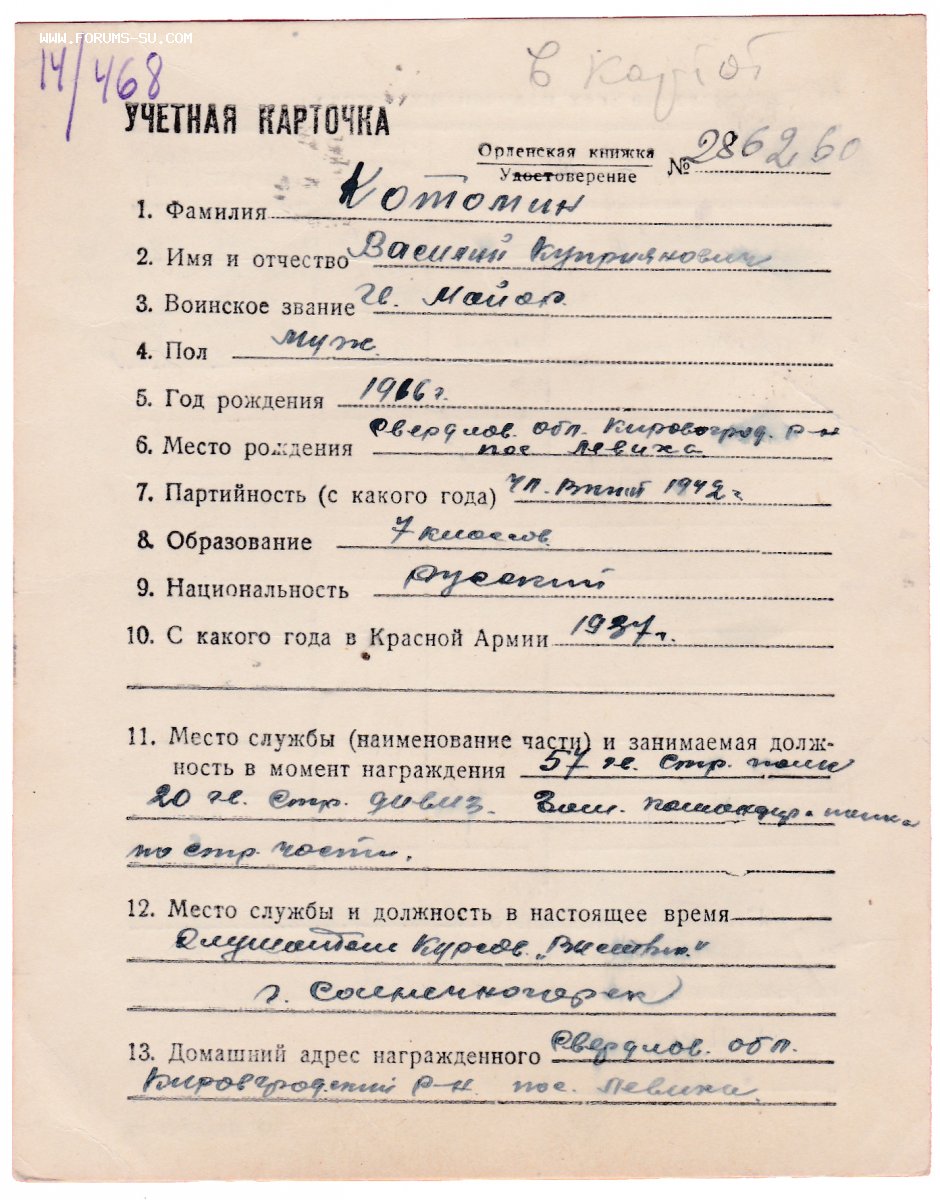 WWW.FORUMS-SU.COM
14/468
в карт
УЧЕТНАЯ КАРТОЧКА
Орденская книжка
Удостоверение № 286260
1. Фамилия Котомин
2. Имя и отчество Василий Куприянович
3. Воинское звание Гв. Майор
4. Пол Муж.
5. Год рождения 1916 г.
6. Место рождения Свердлов. обл. Кировоград. р-н
пос Левиха
7. Партийность (с какого года) Чл. ВКП(б) 1942 г
8. Образование 7 классов
9. Национальность Русский
10. С какого года в Красной Армии 1937 г.
11. Место службы (наименование части) и занимаемая долж-
ность в момент награждения 57 гв. стр. полк
20 гв. стр. дивиз. Зам. командира полка
по стр. части.
12. Место службы и должность в настоящее время
Слушатель Курсов "Выстрел"
г. Солнечногорск
13. Домашний адрес награжденного Свердлов. обл.
Кировградский р-н. пос. Левиха.